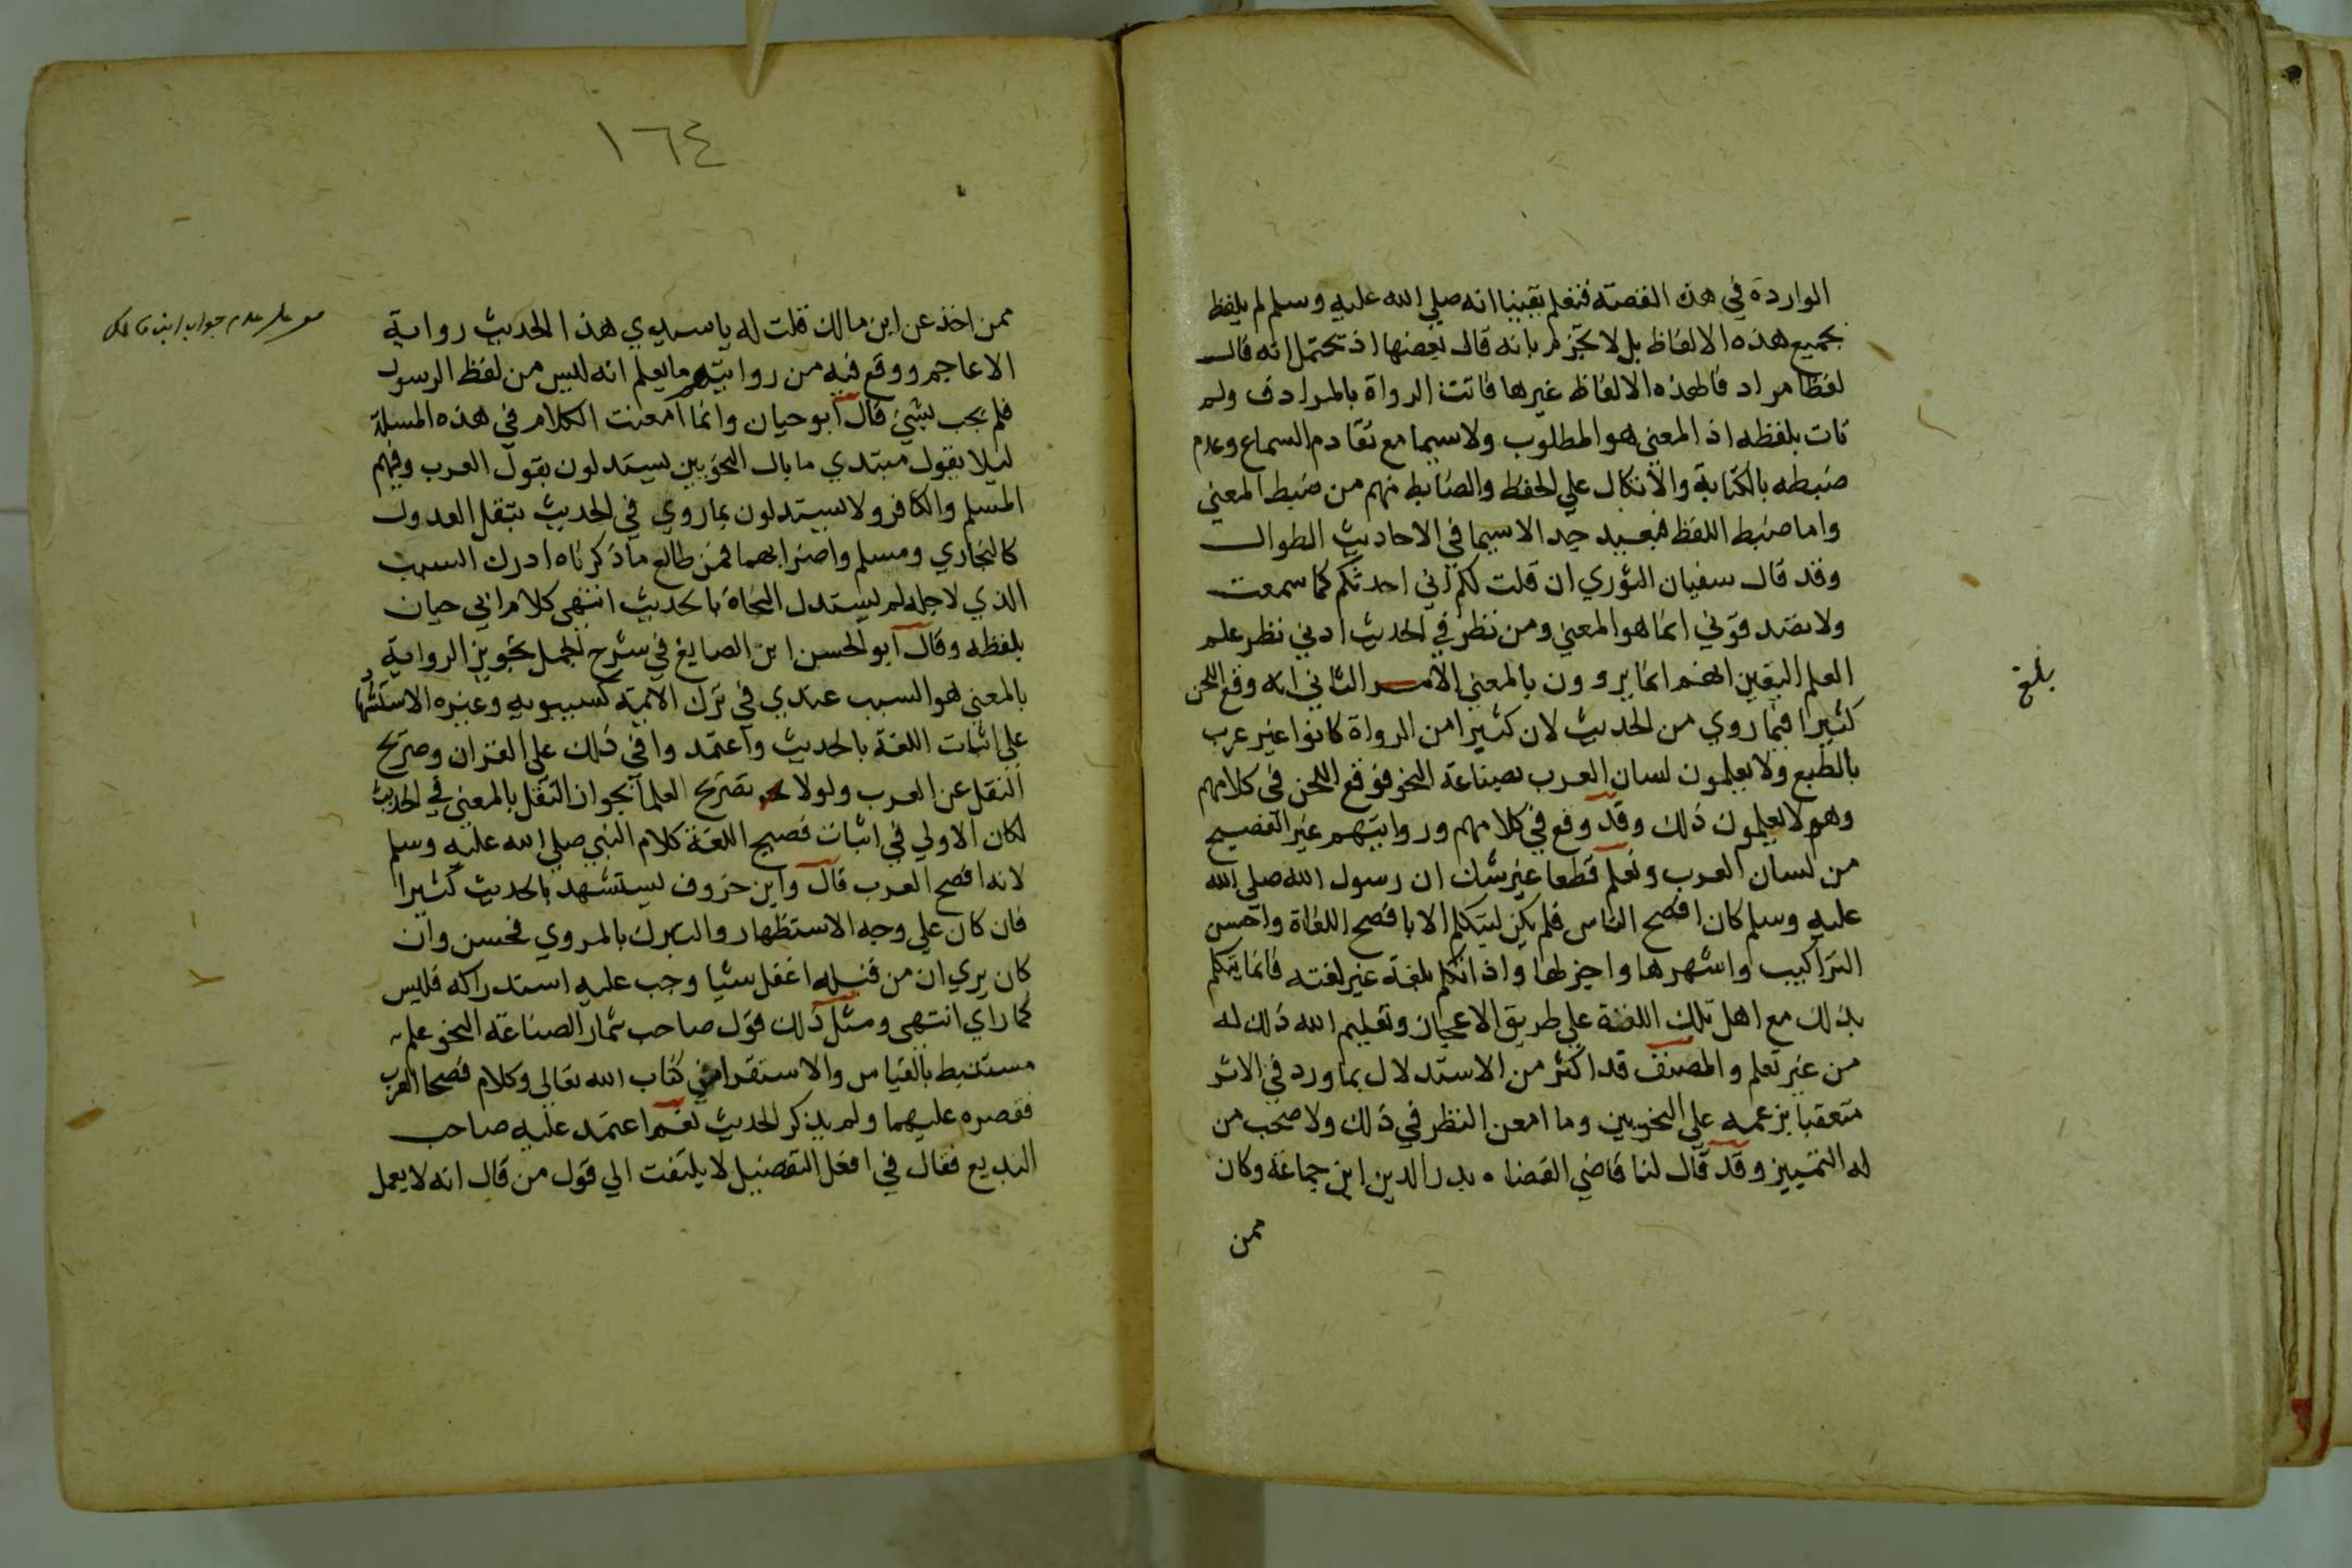 الواردة في هذه القصة فنعلم يقينا انه صلى الله عليه وسلم لم يلفظ
بجميع هذه الالفاظ بل لا نجزم بانه قال بعضها اذ يحتمل انه قال
لفظا مرادفا لهذه الالفاظ غيرها فاتت الرواة بالمرادف ولم
تات بلفظه اذ المعني هو المطلوب ولا سيما مع تقادم السماع وعدم
ضبطه بالكتابة والاتكال علي الحفظ والضابط منهم من ضبط المعني
واما ضبط اللفظ فبعيد جدا لاسيما في الاحاديث الطوال
وقد قال سفيان الثوري ان قلت لكم اني احدثكم كما سمعت
ولا تصدقوني انما هو المعني ومن نظر في الحديث ادني نظر علم
العلم اليقين انهم انما يروون بالمعني الامر الثاني انه وقع اللحن
كثيرا فيما روي من الحديث لان كثيرا من الرواة كانوا غير عرب
بالطبع ولا يعلمون لسان العرب بصناعة النحو فوقع اللحن في كلامهم
وهم لا يعلمون ذلك وقد وقع في كلامهم وروايتهم غير الفصيح
من لسان العرب ونعلم قطعا غير شك ان رسول الله صلى الله
عليه وسلم كان افصح الناس فلم يكن ليتكلم الا بافصح اللغات واحسن
التراكيب واشهرها واجزلها واذا تكلم بلغة غير لغته فانما يتكلم
بذلك مع اهل تلك اللغة علي طريق الاعجاز وتعليم الله ذلك له
من غير تعلم والمصنف قد اكثر من الاستدلال بما ورد في الاثر
متعقبا بزعمه علي النحويين وما امعن النظر في ذلك ولا صحب من
له التمييز وقد قال لنا قاضي القضاه بدر الدين ابن جماعة وكان
ممن
بلغ
١٦٤
ممن اخذ عن ابن مالك قلت له يا سيدي هذا الحديث رواية
الاعاجم ووقع فيه من روايتهم ما يعلم انه ليس من لفظ الرسول
فلم يجب بشيئ قال ابو حيان وانما امعنت الكلام في هذه المسلة
ليلا يقول مبتدي ما بال النحويين يستدلون بقول العرب وفيهم
المسلم والكافر ولا يستدلون بما روي في الحديث بنقل العدول
كالبخاري ومسلم واضرابهما فمن طالع ما ذكرناه ادرك السبب
الذي لاجله لم يستدل النحاة بالحديث انتهى كلام ابي حيان
بلفظه وقال ابو الحسن ابن الصايغ في شرح الجمل تجويز الرواية
بالمعني هو السبب عندي في ترك الايمة كسيبويه وغيره الاستشهاد
علي اثبات اللغة بالحديث واعتمدوا في ذلك علي القران وصريح
النقل عن العرب ولولا تصريح العلما بجواز النقل بالمعني في الحديث
لكان الاولي في اثبات فصيح اللغة كلام النبي صلى الله عليه وسلم
لانه افصح العرب قال وابن خروف يستشهد بالحديث كثيرا
فان كان علي وجه الاستظهار والتبرك بالمروي فحسن وان
كان يري ان من قبله اغفل شيا وجب عليه استدراكه فليس
كما راي انتهى ومثل ذلك قول صاحب ثمار الصناعة النحو علم
مستنبط بالقياس والاستقرا من كتاب الله تعالى وكلام فصحا العرب
فقصره عليهما ولم يذكر الحديث نعم اعتمد عليه صاحب
البديع فقال في افعل التفضيل لا يلتفت الي قول من قال انه لا يعمل